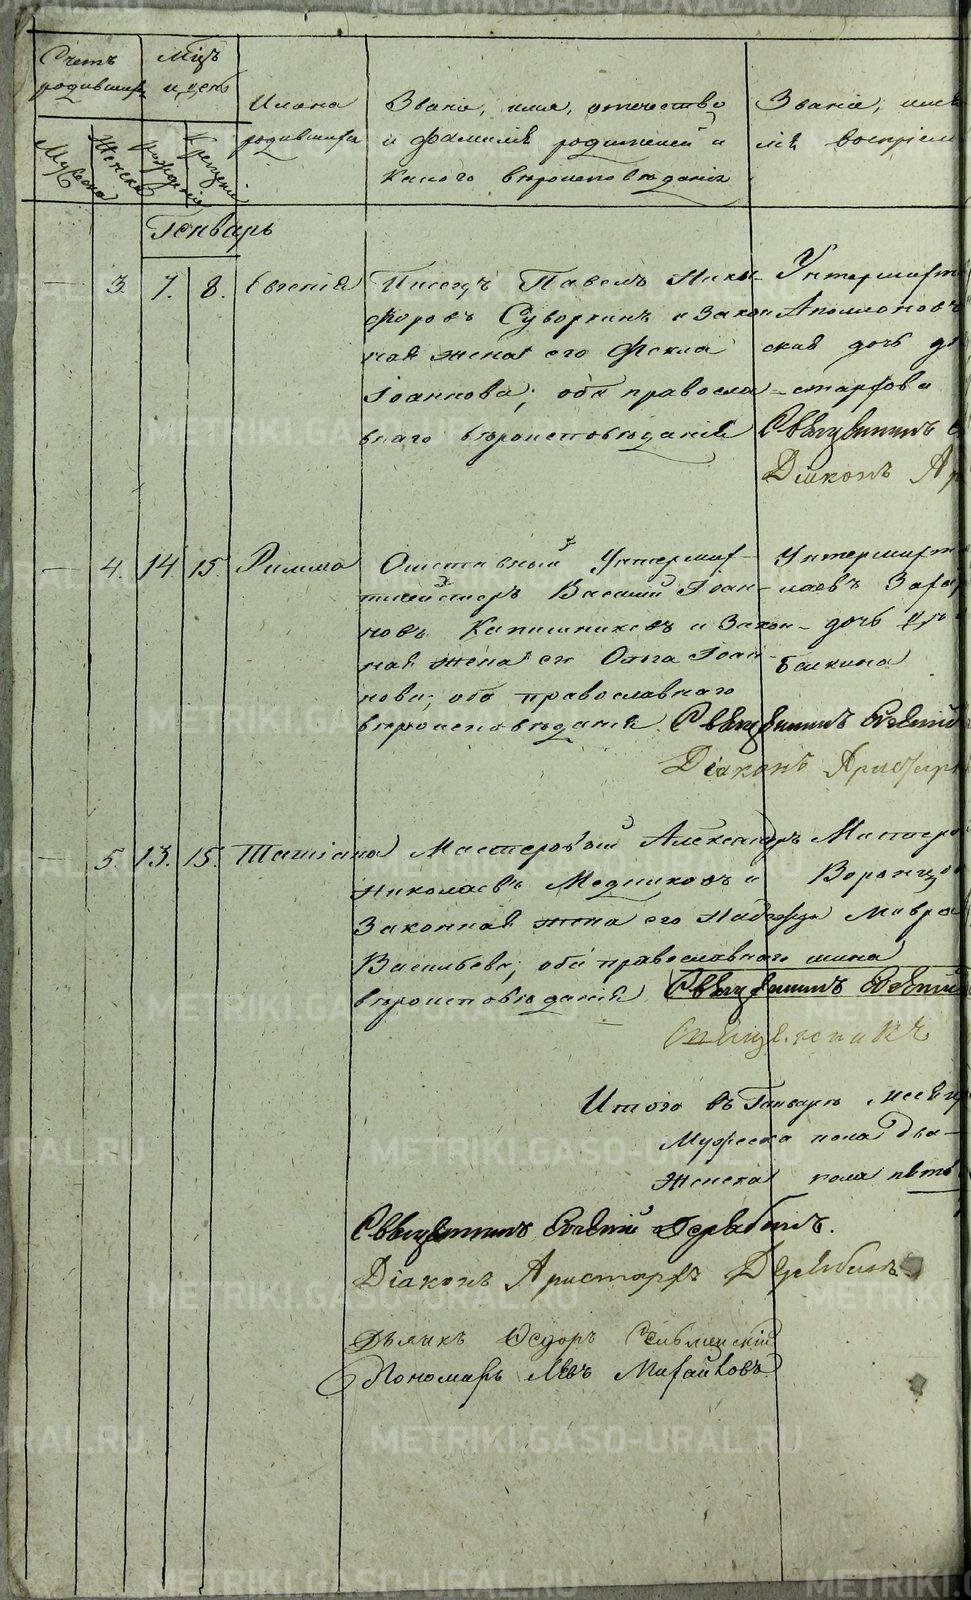 Счетъ родившихъ
Мцъ и день
Имена родившихъ
Званіе, имя, отчество
и фамилія родителей и
какого вѣроисповѣданія
Званіе, имя
лія воспріем
Мужеска
Женска
рожденія
крещенія
Генварь
— 3. 7. 8. Евгенія
Писецъ Павелъ Ники-
форовъ Суворкинъ и закон
ная жена его Фекла
Іоаннова; оба правосла-
внаго вѣроисповѣданія
Унтершихт
Аполлоновъ
ская дочь д
Священникъ
Діаконъ Ар
— 4. 14. 15. Римма
Отставный Унтерших-
тмейстеръ Василій Іоан-
новъ Капишниковъ и закон-
ная жена ег Ольга Іоан-
нова; оба православнаго
вѣроисповѣданія
Унтершихт
лаевъ Заха
дочь
Священникъ Евгеній
Діаконъ Аристарх
— 5. 13. 15. Татіана
Мастеровый Александръ
Николаевъ Медниковъ и
законная жена его Надежда
Васильева; оба православнаго
вѣроисповѣданія
Мастеро
Воронцо
Мавра
шина
Священникъ Евгеній
Итого въ Генварѣ месяц
Мужеска пола два—
Женска пола пять
Священникъ Евгеній Дерябинъ.
Діаконъ Аристархъ Дерябинъ
Дьячкъ Ѳедоръ
Пономарь Левъ Михайловъ
METRIKI.GASO-URAL.RU